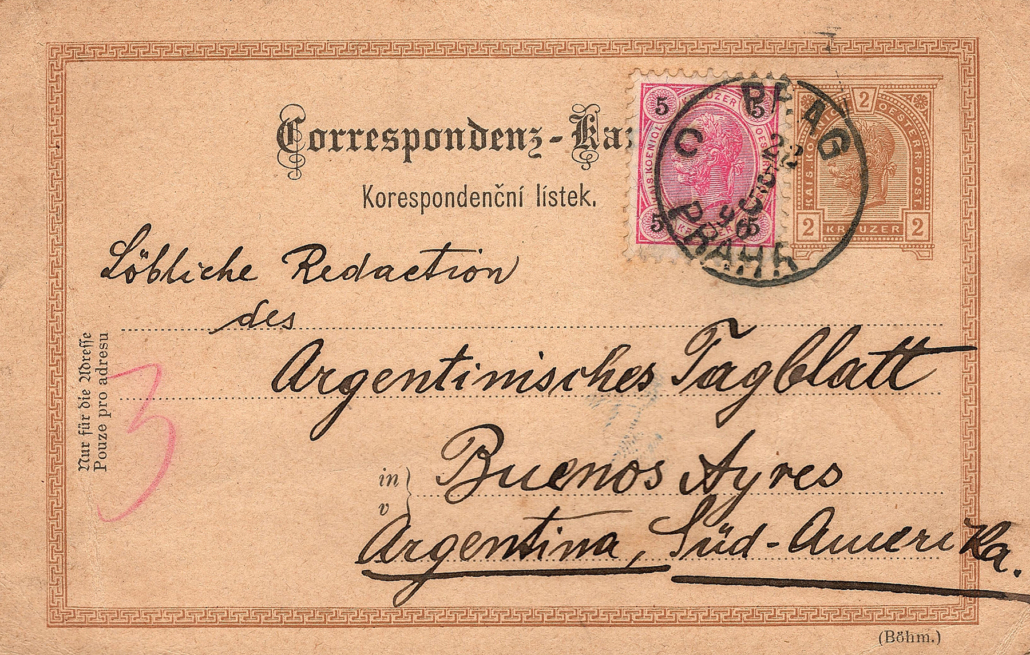 Correspondenz-Kar
Korespondenční lístek.
5 KREUZER 5
KAIS. KOENIGL.
5 5
2
KAIS. KOENIGL. OESTERR. POST
2 KREUZER 2
PRAG
C
22
96
PRAHA
Löbliche Redaction
des
Argentinisches Tagblatt
Nur für die Adresse
Pouze pro adresu
3
in
v
Buenos Ayres
Argentina, Süd-Amerika.
(Böhm.)